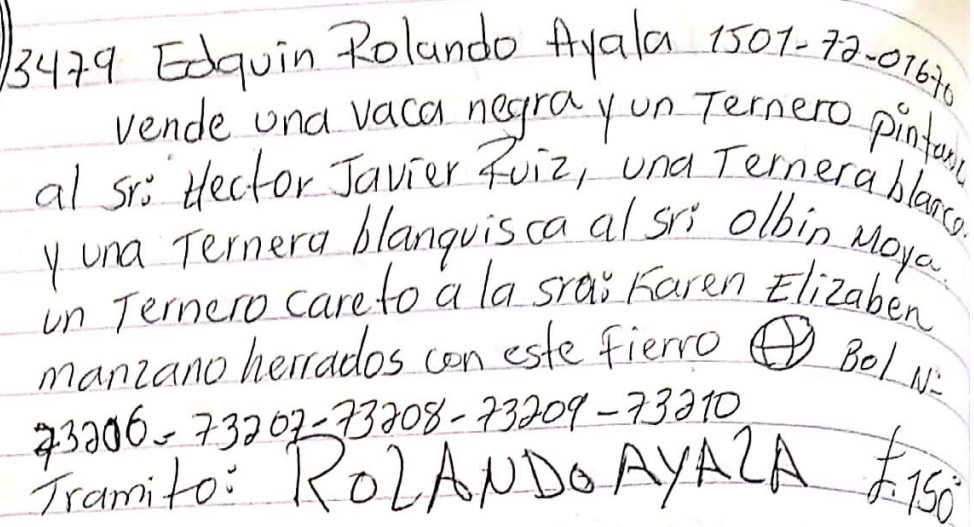 3479 Edquin Rolando Ayala 1501-72-01670
vende una vaca negra y un Ternero
al sr: Hector Javier Ruiz, una Ternera blanca.
y una Ternera blanquisca al sr: Olbin Moya.
un Ternero careto a la sra: Karen Elizaben
manzano herrados con este fierro Bol Nº
73206-73207-73208-73209-73210
Tramito: ROLANDO AYALA L.150